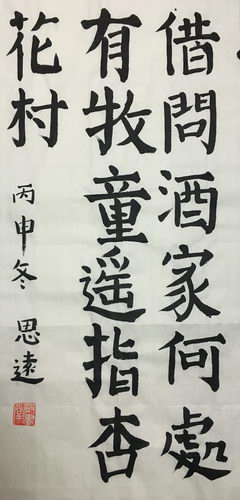 借問酒家何處
有牧童遥指杏
花村
丙申冬 思遠